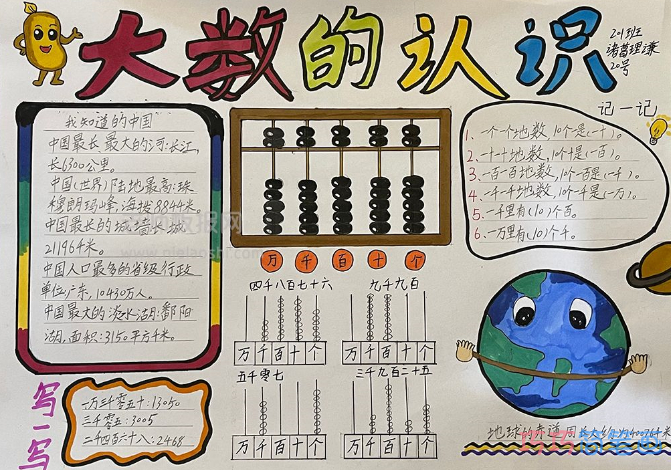 大数的认识
201班
诸葛理谦
20号
"我知道的中国"
中国最长最大的河:长江,
长6300公里。
中国(世界)陆地最高:珠
穆朗玛峰,海拔8844米
中国最长的城墙长城
211964米。
中国人口最多的省级行政
单位广东,10430万人。
中国最大的淡水湖:鄱阳
湖,面积:3150平方千米。
万 千 百 十 个
记一记
1、一个一个地数,10个是(一十)。
2、一十一十地数,10个十是(一百)。
3、一百一百地数,10个一百是(一千)。
4、一千一千地数,10个一千是(一万)。
5、一千里有(10)个百。
6、一万里有(10)个千。
四千八百七十六
九千九百
万千百十个
万千百十个
五千零七
三千九百二十五
万千百十个
万千百十个
写一写
一万三千零五十:13050
三千零五:3005
二千四百六十八:2468
地球的赤道周长大约为40076千米